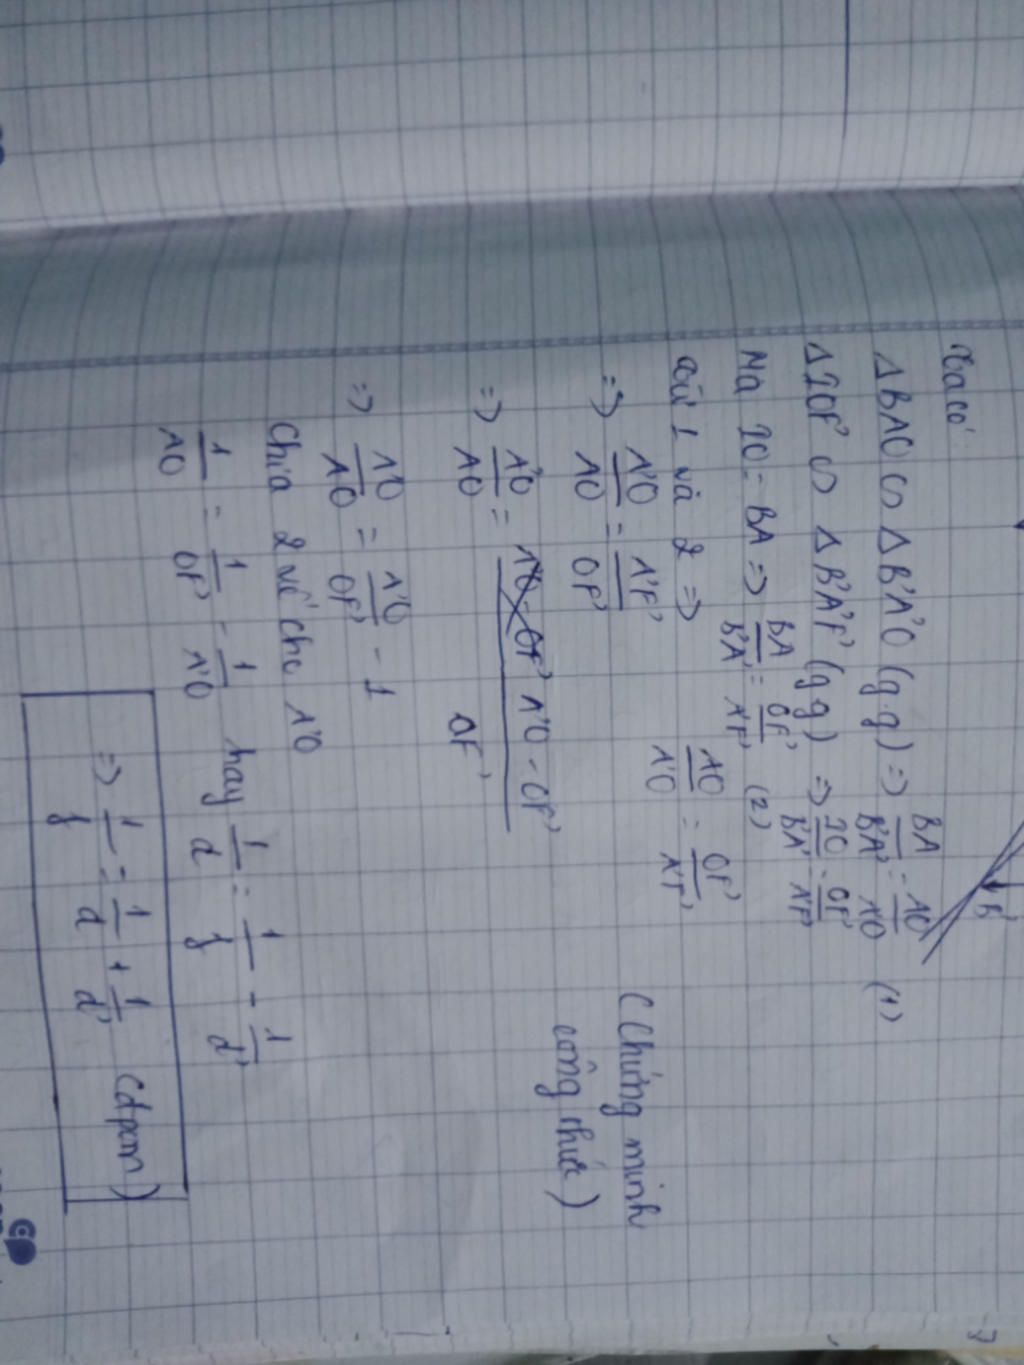 B'
Ta có:
Δ BAO ∽ Δ B'A'O (g.g) => BA/B'A' = AO/A'O (1)
Δ IOF' ∽ Δ B'A'F' (g.g) => IO/B'A' = OF'/A'F'
Mà IO = BA => BA/B'A' = OF'/A'F' (2)
Từ 1 và 2 => AO/A'O = OF'/A'F'
=> A'O/AO = A'F'/OF'
(Chứng minh
công thức)
=> A'O/AO = A'O - OF'/OF'
=> A'O/AO = A'O/OF' - 1
Chia 2 vế cho A'O
1/AO = 1/OF' - 1/A'O hay 1/d = 1/f - 1/d'
=> 1/f = 1/d + 1/d' (đpcm)